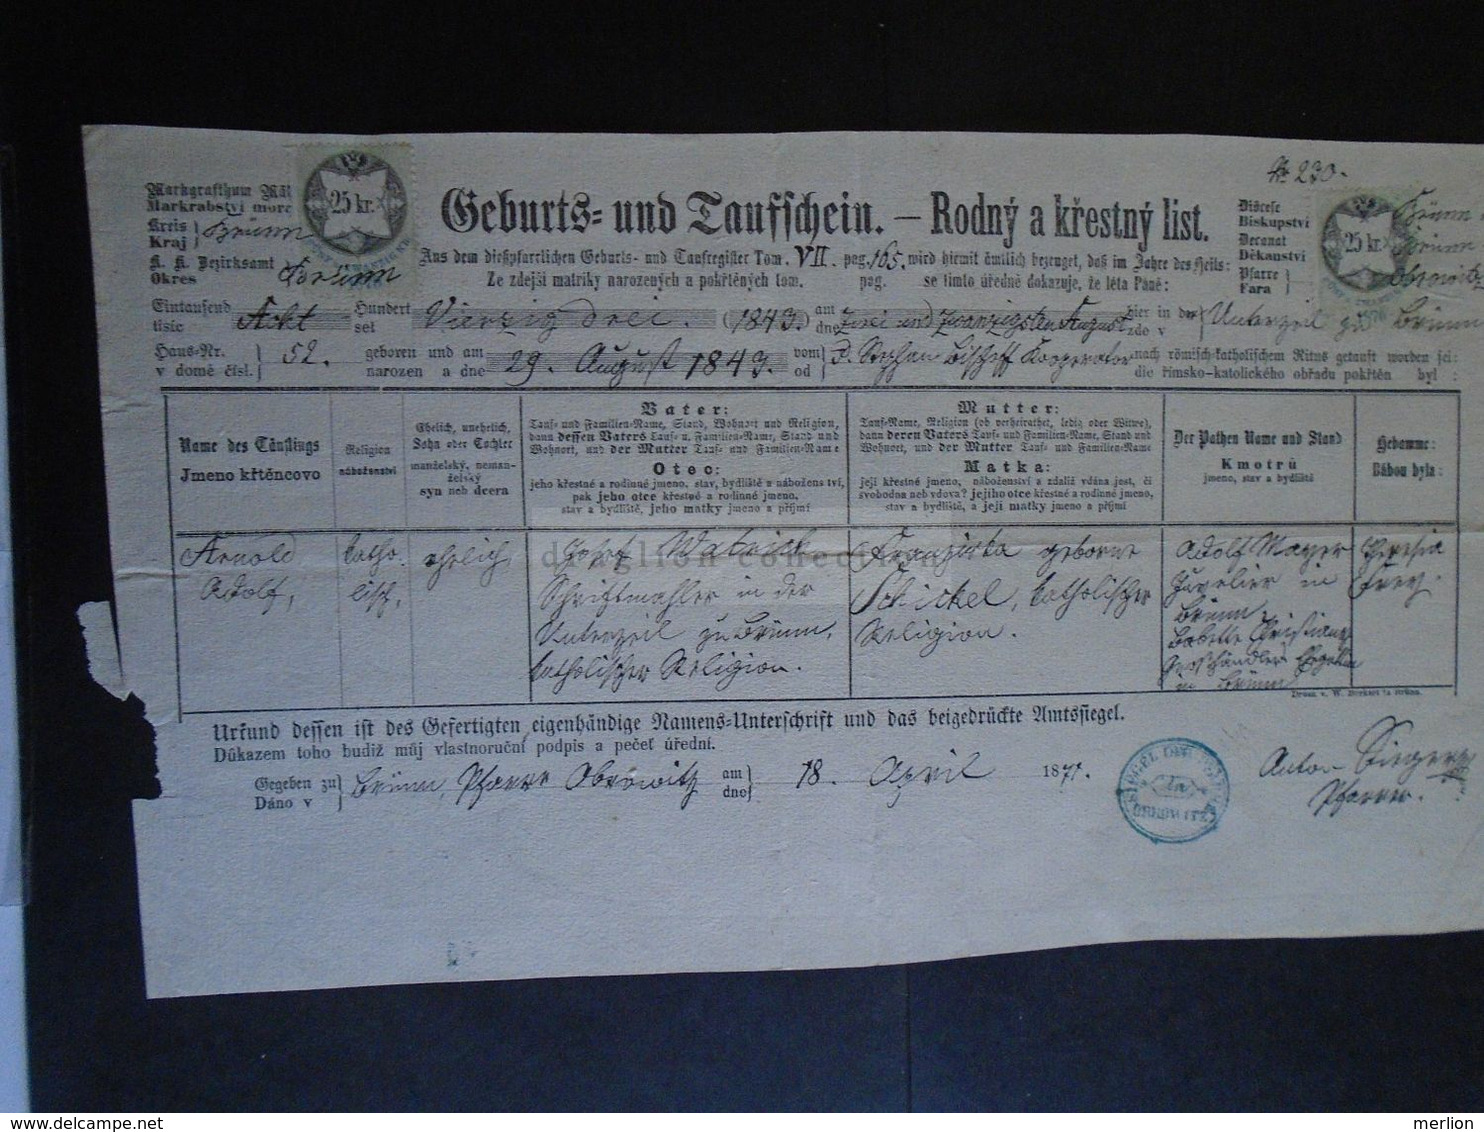 No 230.
Markgrafthum Mäh
Markrabství morc
Kreis
Kraj
Brünn
K. K. Bezirksamt
Okres
Brünn
25 kr.
Geburts- und Taufschein. — Rodný a křestný list.
Diöcese
Biskupství
Brünn
Decanat
Děkanství
Brünn
Pfarre
Fara
Obrowitz
25 kr.
Aus dem dießpfarrlichen Geburts- und Taufregister Tom. VII. pag. 165. wird hiemit ämtlich bezeuget, daß im Jahre des Heils:
Ze zdejší matriky narozených a pokřtěných tom. pag. se tímto úředně dokazuje, že léta Páně:
Eintausend Acht Hundert Vierzig drei. (1843.) am Zwei und Zwanzigsten August hier in der Unterzeil zu Brünn
tisíc set dne zde v
Haus-Nr. 52. geboren und am 29. August 1843. vom P. Stephan Bischoff Kooperator nach römisch-katholischem Ritus getauft worden sei:
v domě čísl. narozen a dne od die římsko-katolického obřadu pokřtěn byl :
Name des Täuflings
Jmeno křtěncovo
Religion
náboženství
Ehelich, unehelich,
Sohn oder Tochter
manželský, neman-
želský
syn neb dcera
Vater:
Tauf- und Familien-Name, Stand, Wohnort und Religion,
dann dessen Vaters Tauf- u. Familien-Name, Stand und
Wohnort, und der Mutter Tauf- und Familien-Name
Otec:
jeho křestné a rodinné jmeno, stav, bydliště a náboženství,
pak jeho otce křestné a rodinné jmeno,
stav a bydliště, jeho matky jmeno a příjmí
Mutter:
Tauf-Name, Religion (ob verheirathet, ledig oder Witwe),
dann deren Vaters Tauf- und Familien-Name, Stand und
Wohnort, und der Mutter Tauf- und Familien-Name
Matka:
její křestné jmeno, náboženství a zdaliž vdána jest, či
svobodna neb vdova? jejího otce křestné a rodinné jmeno,
stav a bydliště, a její matky jmeno a příjmí
Der Pathen Name und Stand
Kmotrů
jmeno, stav a bydliště
Hebamme:
Bábou byla:
Arnold
Adolf,
katho-
lisch,
ehelich
Josef
Schriftmahler in der
Unterzeil zu Brünn,
katholischer Religion.
Franziska geborne
Schickel, katholischer
Religion.
Adolf Mayer
Juvelier in
Brünn
Babette Christiane
Großhändlers
in Brünn
Theresia
Frey.
Druck v. W. Burkart in Brünn.
Urkund dessen ist des Gefertigten eigenhändige Namens-Unterschrift und das beigedrückte Amtssiegel.
Důkazem toho budiž můj vlastnoruční podpis a pečeť úřední.
Gegeben zu Brünn, Pfarre Obrowitz am 18. April 1871.
Dáno v dne
Anton
Pfarrer.
delcampe.net
merlion